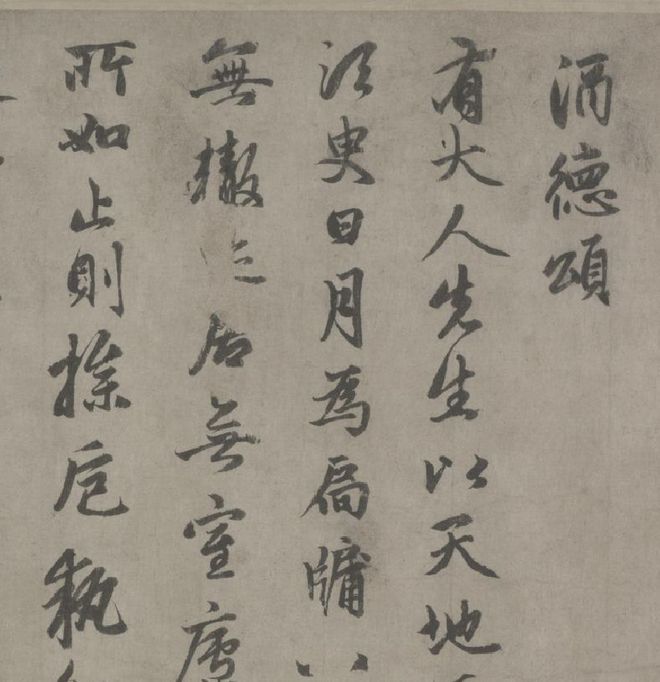 酒德頌
有大人先生以天地
須臾日月為扃牖
無轍迹居無室廬
所如止則操卮執